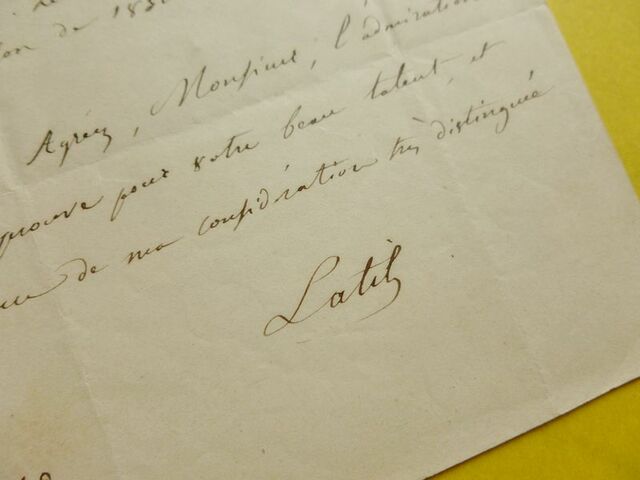 de
ion de 183
Agréez, Monsieur, l'admiration
prouve pour votre beau talent, et
de ma considération très distinguée
Latil